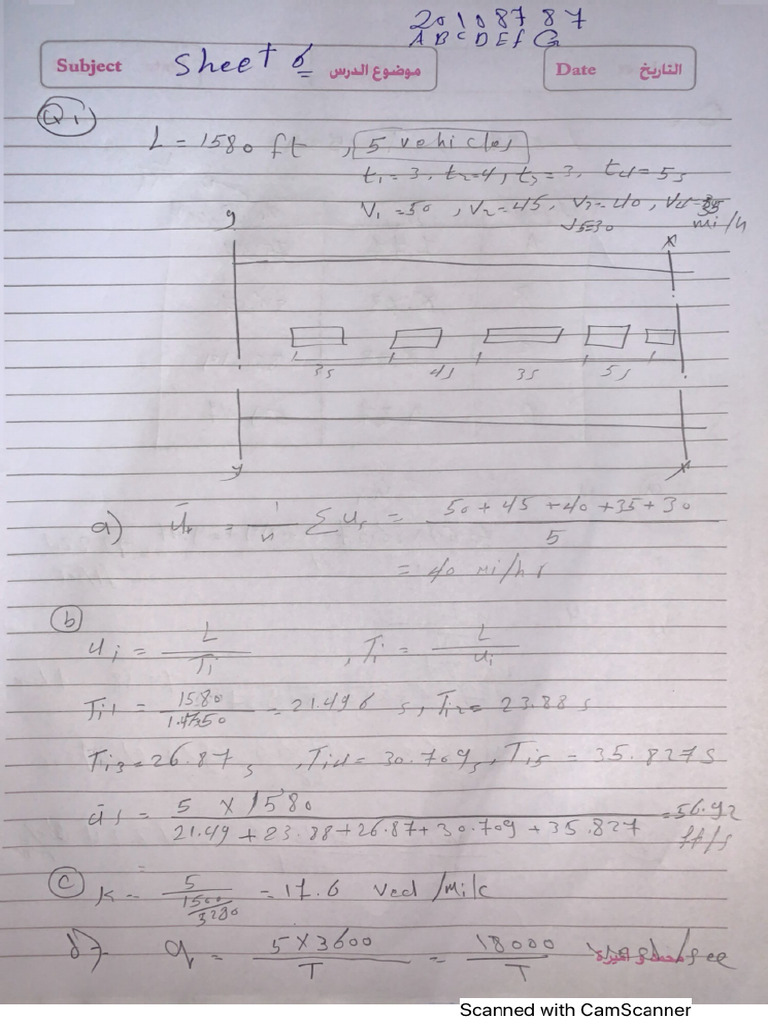 201087 87
A B C D E F G
Subject Sheet 6 موضوع الدرس Date التاريخ
Q1
L = 1580 ft , 5 vehicles
t1 = 3, t2=4, t3 = 3, t4 = 5s
V1 = 50 , V2 = 45, V3 = 40, V4 = 35
V5=30 mi/h
y x
3s 4s 3s 5s
y x
a) ūt = 1/n Σ ui = (50 + 45 + 40 + 35 + 30)/5
= 40 mi/hr
b
ui = L/Ti , Ti = L/ui
Ti1 = 1580/(1.47x50) = 21.496 s, Ti2 = 23.88 s
Ti3 = 26.87 s , Ti4 = 30.709 s, Ti5 = 35.827 s
ūs = (5 x 1580)/(21.49 + 23.88 + 26.87 + 30.709 + 35.827) = 56.92 ft/s
c K = 5/(1500/5280) = 17.6
d) q = (5 x 3600)/T = 18000/T
Scanned with CamScanner